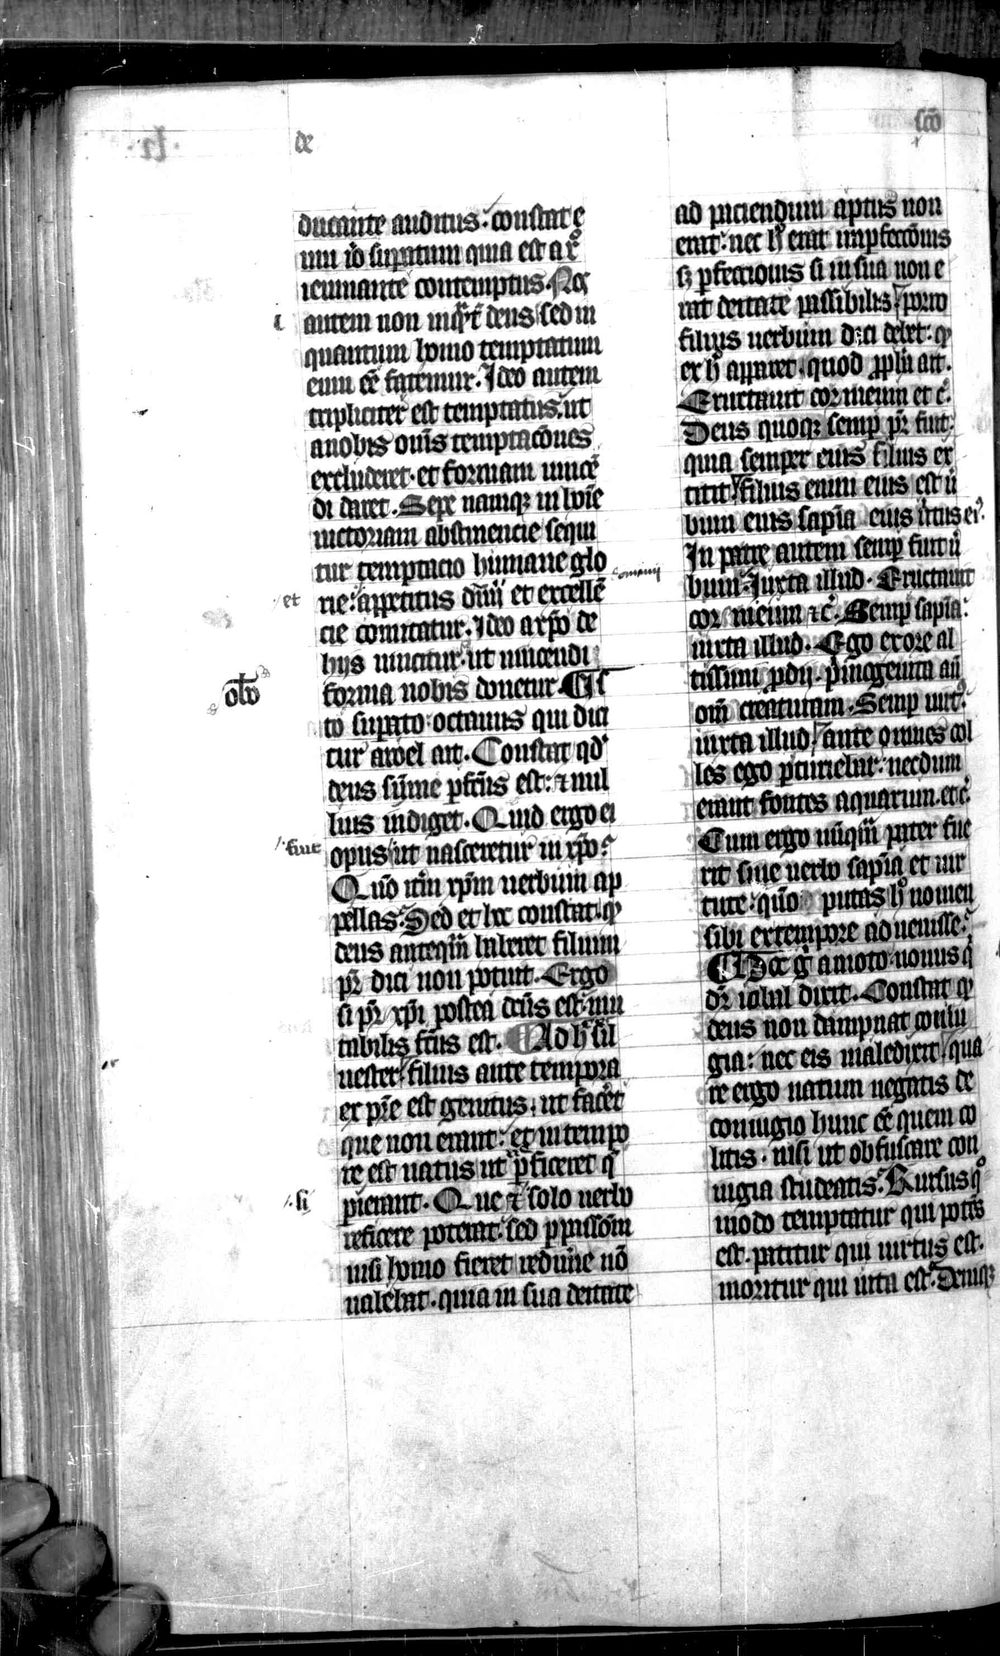 de
sco̅
ducante auditus: constat e
nim io̅ sup̱atum quia est a x̅
ieiunante contemptus. Nos
autem non inq̅t̅ deus sed in
quantum homo temptatum
eum ee̅ fatemur. Ideo autem
tripliciter est temptatus: ut
a nobis oms̅ temptaco̅nes
excluderet. et formam uince̅
di daret. Sepe namq; in ho̅i̅e
uictoriam abstinencie sequi
tur temptacio humane glo
rie: appetitus dn̅ij et excelle̅
cie comitatur. Ideo a xp̅o de
hijs uincitur: ut uincendi
forma nobis donetur. Is
to sup̱ato octauus qui dici
tur aroel ait. Constat qd'
deus su̅me p̱fc̅us est: et nul
lius indiget. Quid ergo ei
opus ut nasceretur in xp̅o?
Quo̅ itm̅ xp̅m uerbum ap
pellas? Sed et hec constat. q̱
deus anteq̅m haberet filium
pr̅ dici non potuit. Ergo
si pr̅ xp̅i postea dc̅us est. mu
tabilis fc̅us est. Ad h̅ sil
uester: filius ante tempora
ex pr̅e est genitus: ut facet̅
que non erant: et in tempo
re est natus ut p̱ficeret q̅
pierant. Que et solo uerbo
reficere poterat: sed p̱ passio̅m
nisi homo fieret redime̅ no̅
ualebat. quia in sua deitate
et
oct̅o
fiuit
si
ad paciendum aptus non
erat: nec h̅ erat imp̱fecco̅nis
s; p̱feccionis si in sua non e
rat deitate passibilis. porro
filius uerbum dei ci debet: q̱
ex h̅ apparet. quod p̱ph̅a ait.
Eructauit cor meum et c̅.
Deus quoq; semp̱ pr̅ fuit:
quia semper eius filius ex
titit. filius enim eius est u̅
bum eius sapi̅a eius u̅tus ei9.
In patre autem semp̱ fuit u̅
bum: Iuxta illud. Eructauit
cor meum et c̅. Semp̱ sapi̅a:
iuxta illud. Ego ex ore al
tissimi p̱dij. p̱mogenita an̅
om̅ creaturam. Semp̱ uirt9.
iuxta illud. ante omnes col
les ego p̱turiebar: necdum
erant fontes aquarum. et c̅.
Cum ergo nu̅q̅m pater fue
rit sine uerbo sapi̅a et uir
tute: quo̅ putas h̅ nomen
sibi ex tempore aduenisse?
Hoc g̅ amoto nonus q̅
dr̅ iubal dixit. Constat q̱
deus non dampnat coniu
gia: nec eis maledixit: qua
re ergo natum negatis de
coniugio hunc ee̅ quem co
litis. nisi ut obfuscare con
iugia studeatis? Rursus q̅
modo temptatur qui potes̅
est. patitur qui uirtus est.
moritur qui uita est? Deniq;